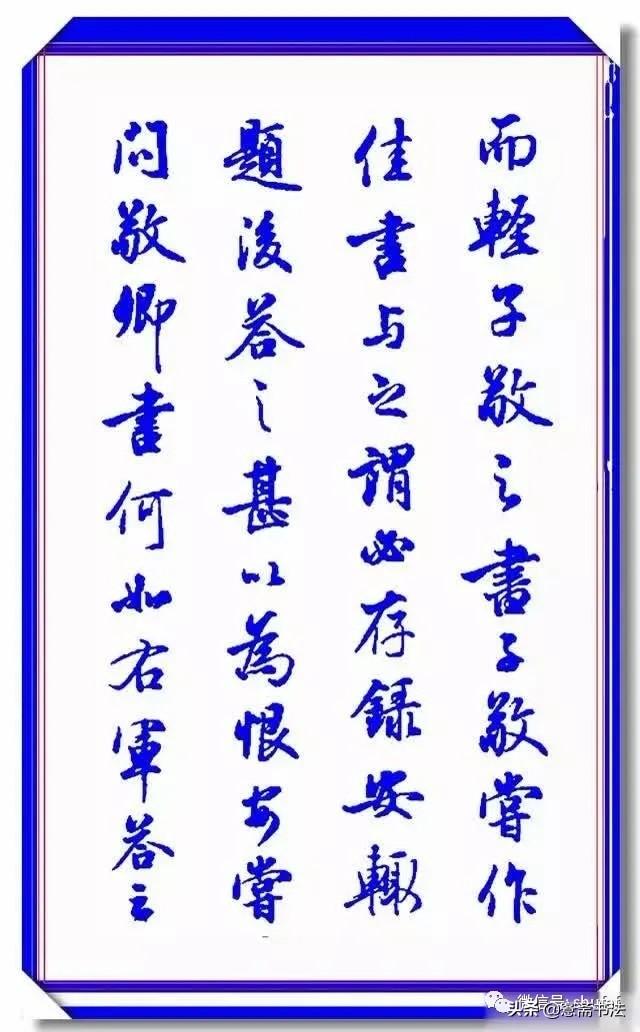 而輕子敬之書子敬嘗作
佳書与之謂必存錄安輙
題後荅之甚以為恨安嘗
問敬卿書何如右軍荅云
微信号: shufaf
头条@惫斋书法